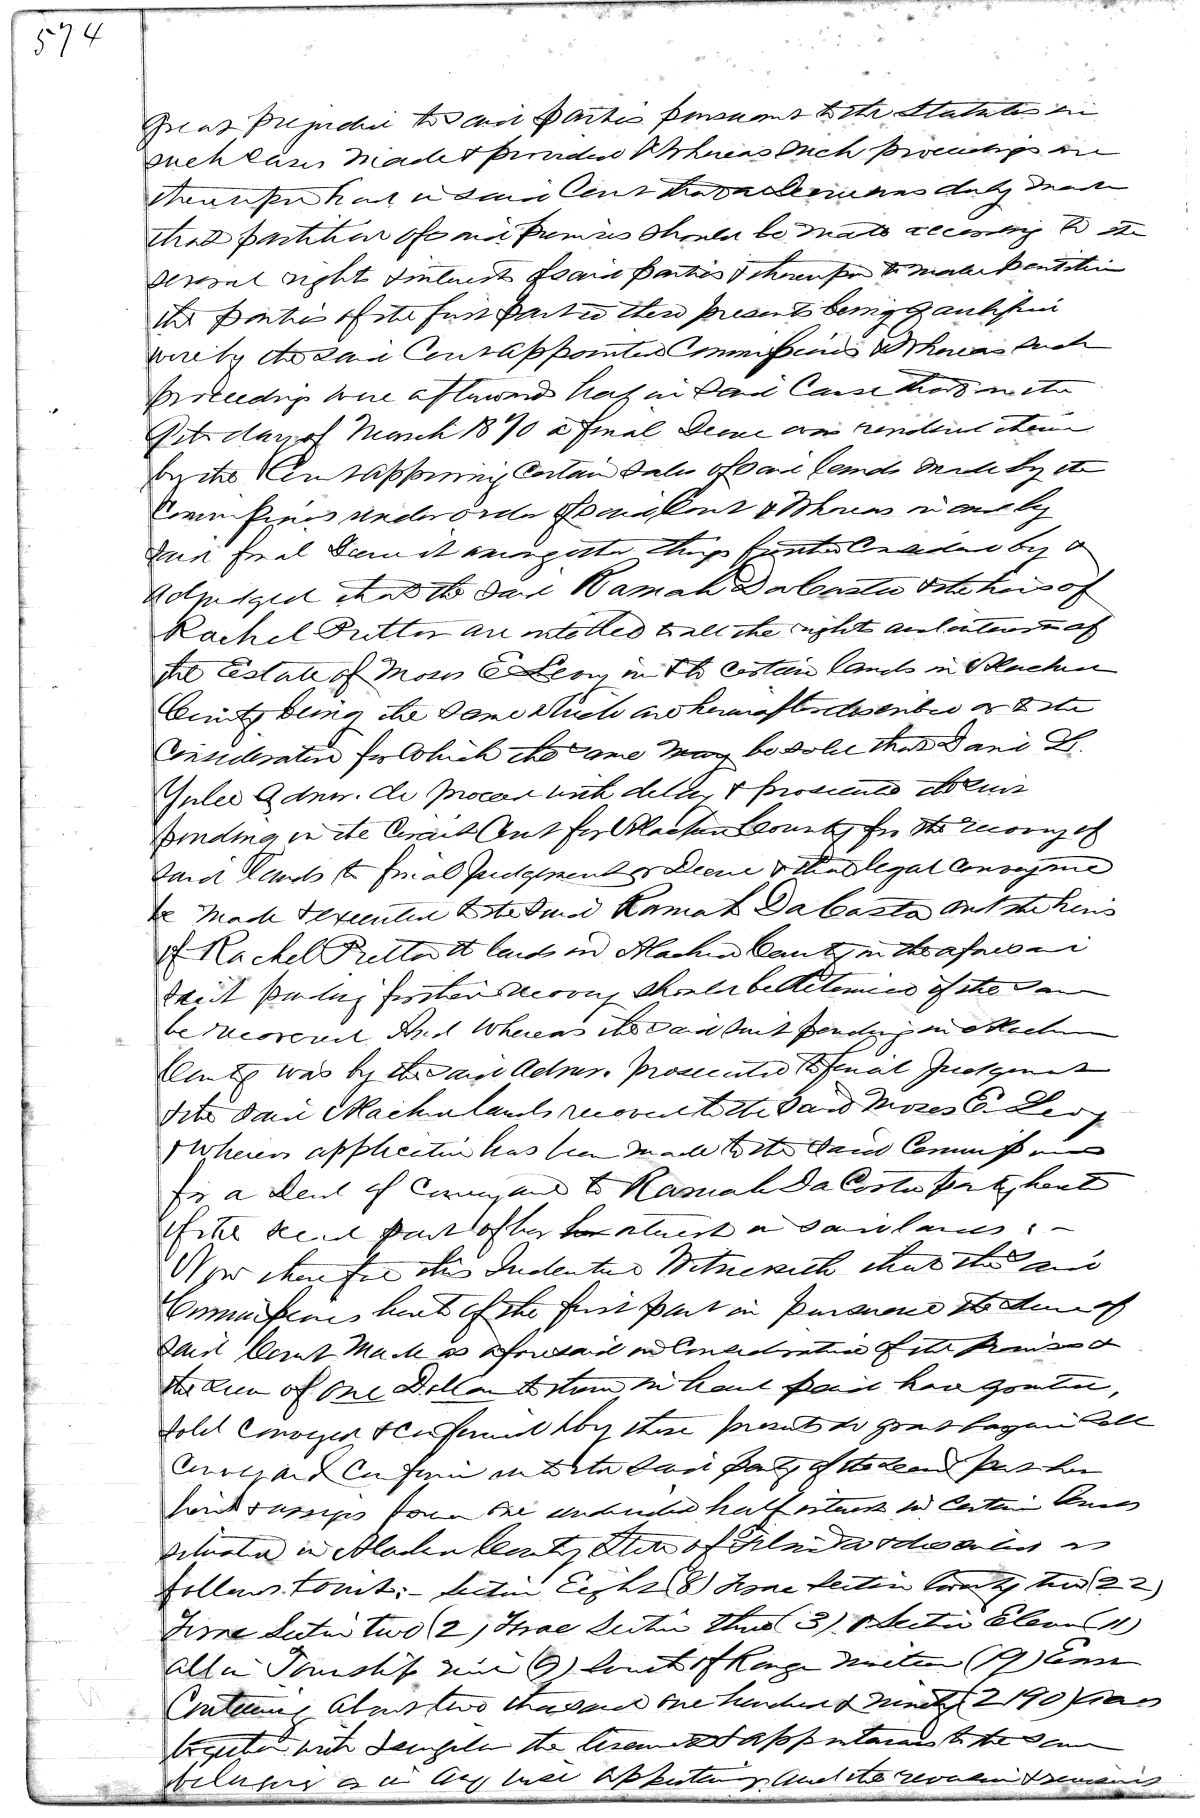 574
great prejudice to said parties pursuant to the Statutes in
such cases made & provided & Whereas such proceedings are
thereupon had in said Court that a Decree was duly made
that partition of said premises should be made according to the
several right & interest of said parties & thereupon to make partition
the parties of the first part to these presents being qualified
were by the said Court appointed Commissioners & Whereas such
proceedings were afterwards had in said Cause that on the
day of March 1870 a final Decree was rendered therein
by the Court approving certain sales of said lands made by the
Commissioners under order of said Court & Whereas in and by
said final Decree it amongst other things further Considered by &
adjudged that the said Ramah DaCosta & the heirs of
Rachel Pretto are entitled to all the rights and interests of
the Estate of Moses E Levy in & to certain lands in Alachua
County being the same which are hereinafter described or to the
Consideration for which the same may be sold that David L.
Yulee Admr. do proceed with delay & prosecute the suit
pending in the Circuit Court for Alachua County for the recovery of
said lands to final Judgement or Decree & that legal conveyance
be made & executed to the said Ramah DaCosta and the heirs
of Rachel Pretto lands in Alachua County in the aforesaid
suit pending for their recovery should be determined if the same
be recovered And Whereas the said suit pending in Alachua
County was by the said Admr. prosecuted to final Judgment
& the said Alachua lands recovered to the said Moses E. Levy
& Whereas application has been made to the said Commissioners
for a Deed of Conveyance to Ramah DaCosta party hereto
of the second part of her interest in said lands : -
Now therefore this Indenture Witnesseth that the said
Commissioners hereto of the first part in pursuance the decree of
said Court made as aforesaid and Consideration of the premises &
the sum of one Dollar to them in hand paid have granted,
sold conveyed & confirmed & by these presents do grant bargain sell
Convey and Confirm unto the said party of the second part her
heirs & assigns forever one undivided half interest in certain lands
situated in Alachua County State of Florida & described as
follows towit:- Section Eight (8) Frac Section twenty two (22)
Frac Section two (2) Frac Section three (3) & Section Eleven (11)
all in Township nine (9) South of Range nineteen (19) East
Containing about two thousand one hundred & ninety (2190) acres
together with & singular the tenements & appurtenances to the same
belonging or in any wise appertaining and the reversion & remainders